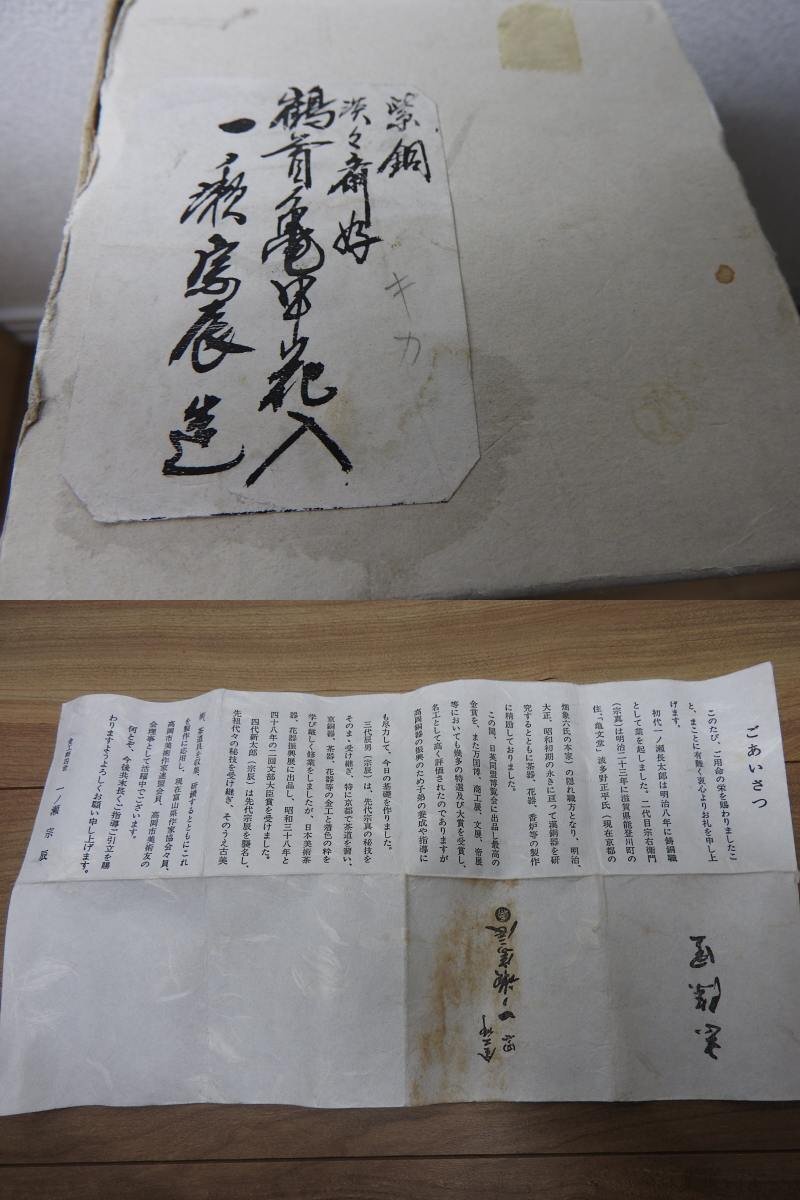 紫銅
淡々斎好
鶴首亀甲花入
一ノ瀬宗辰造
キカ
ごあいさつ
このたび、ご用命の栄を賜わりましたこ
と、まことに有難く衷心よりお礼を申し上
げます。
初代一ノ瀬長太郎は明治八年に鋳銅職
として業を起しました。二代目宗右衛門
(宗真)は明治二十三年に滋賀県能登川町の
住、「亀文堂」波多野正平氏(現在京都の
畑象六氏の本家)の隠れ職方となり、明治、
大正、昭和初期の永きに亘って漢銅器を研
究するとともに茶器、花器、香炉等の製作
に精励しておりました。
この間、日英同盟博覧会に出品し最高の
金賞を、また万国博、商工展、文展、帝展
等においても幾多の特選及び大賞を受賞し、
名工として高く評価されたのでありますが
高岡銅器の振興のため子弟の養成や指導に
も尽力して、今日の基礎を作りました。
三代辰男(宗辰)は、先代宗真の秘技を
そのまゝ受け継ぎ、特に京都で茶道を習い、
京銅器、茶器、花器等の金工と着色の粋を
学び厳しく修業をしましたが、日本美術茶
器、花器振興展に出品し、昭和三十八年と
四十八年の二回文部大臣賞を受けました。
四代新太郎(宗辰)は先代宗辰を襲名し、
先祖代々の秘技を受け継ぎ、そのうえ古美
術、茶道具を収集、研鑽するとともにこれ
を製作に応用し、現在富山県作家協会々員、
高岡市美術作家連盟会員、高岡市美術友の
会理事として活躍中でございます。
何とぞ、今後共末長くご指導ご引立を賜
わりますようよろしくお願い申し上げます。
一ノ瀬宗辰
一ノ瀬宗辰